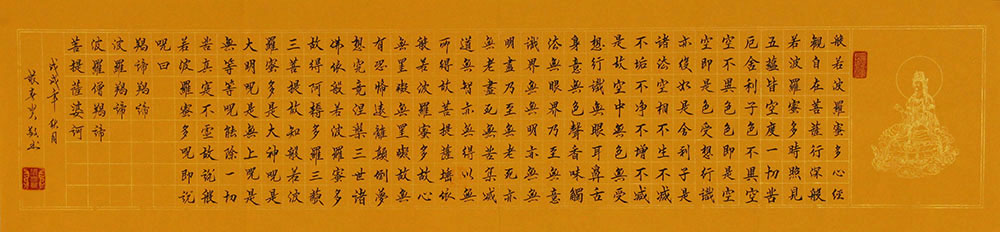 般若波羅蜜多心經
觀自在菩薩行深般
若波羅蜜多時照見
五蘊皆空度一切苦
厄舍利子色不異空
空不異色色即是空
空即是色受想行識
亦復如是舍利子是
諸法空相不生不滅
不垢不淨不增不減
是故空中無色無受
想行識無眼耳鼻舌
身意無色聲香味觸
法無眼界乃至無意
識界無無明亦無無
明盡乃至無老死亦
無老死盡無苦集滅
道無智亦無得以無
所得故菩提薩埵依
般若波羅蜜多故心
無罣礙無罣礙故無
有恐怖遠離顛倒夢
想究竟涅槃三世諸
佛依般若波羅蜜多
故得阿耨多羅三藐
三菩提故知般若波
羅蜜多是大神呪是
大明呪是無上呪是
無等等呪能除一切
苦真實不虛故說般
若波羅蜜多呪即說
呪曰
羯諦羯諦
波羅羯諦
波羅僧羯諦
菩提薩婆訶
戊戌年秋月